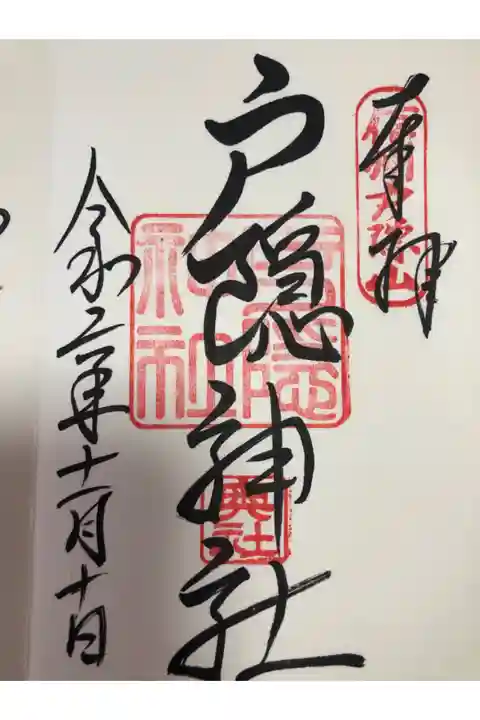 奉拝
信州戸隠山
戸隠神社
戸隠神社
奥社
令和二年十一月十日